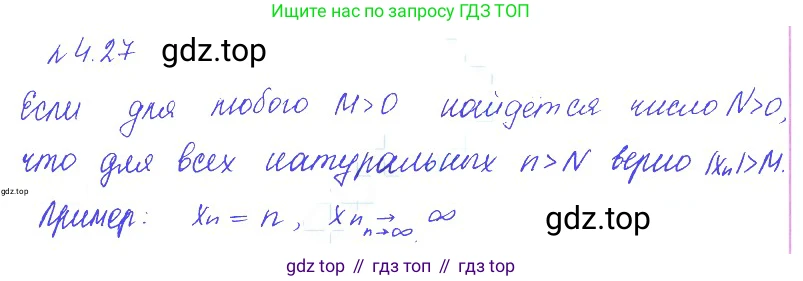 Ищите нас по запросу ГДЗ ТОП
№4.27 gdz.top
Если для любого M>0 найдётся число N>0,
что для всех натуральных n>N верно |xₙ|>M.
gdz.top
Пример: xₙ = n, xₙ → ∞ gdz.top
n→∞
gdz top // гдз топ // gdz top